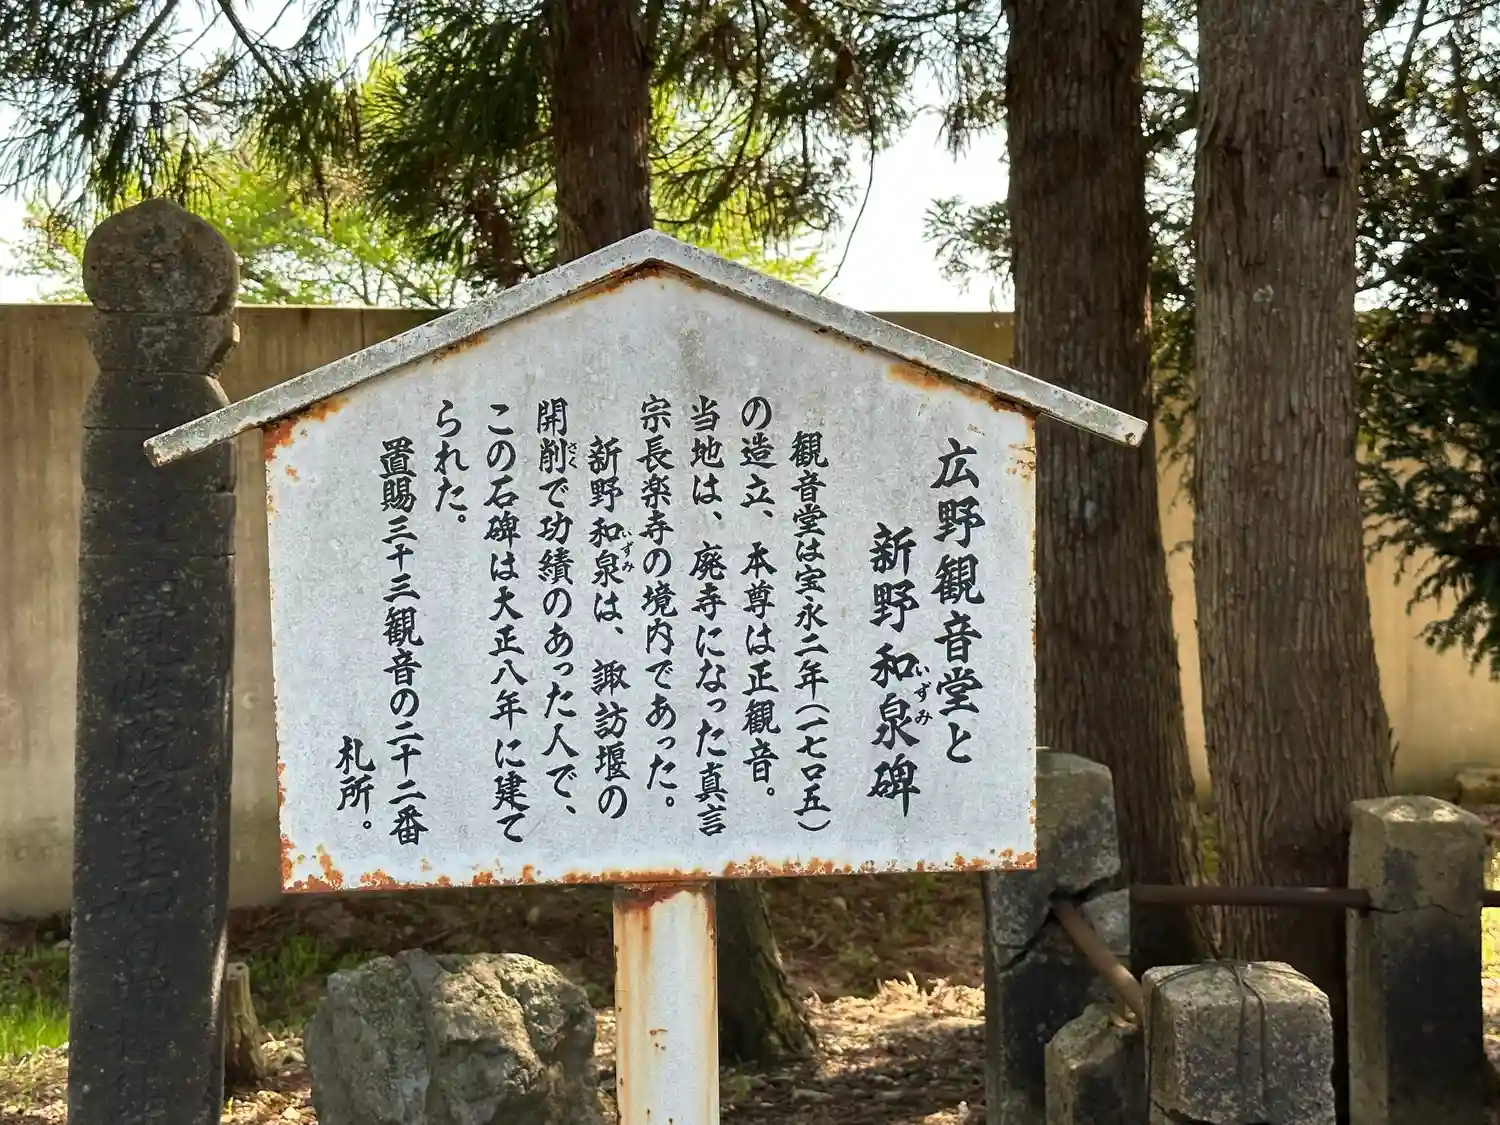 広野観音堂と
新野和泉碑
いずみ
観音堂は宝永二年(一七〇五)
の造立、本尊は正観音。
当地は、廃寺になった真言
宗長楽寺の境内であった。
新野和泉は、諏訪堰の
いずみ
開削で功績のあった人で、
さく
この石碑は大正八年に建て
られた。
置賜三十三観音の二十二番
札所。